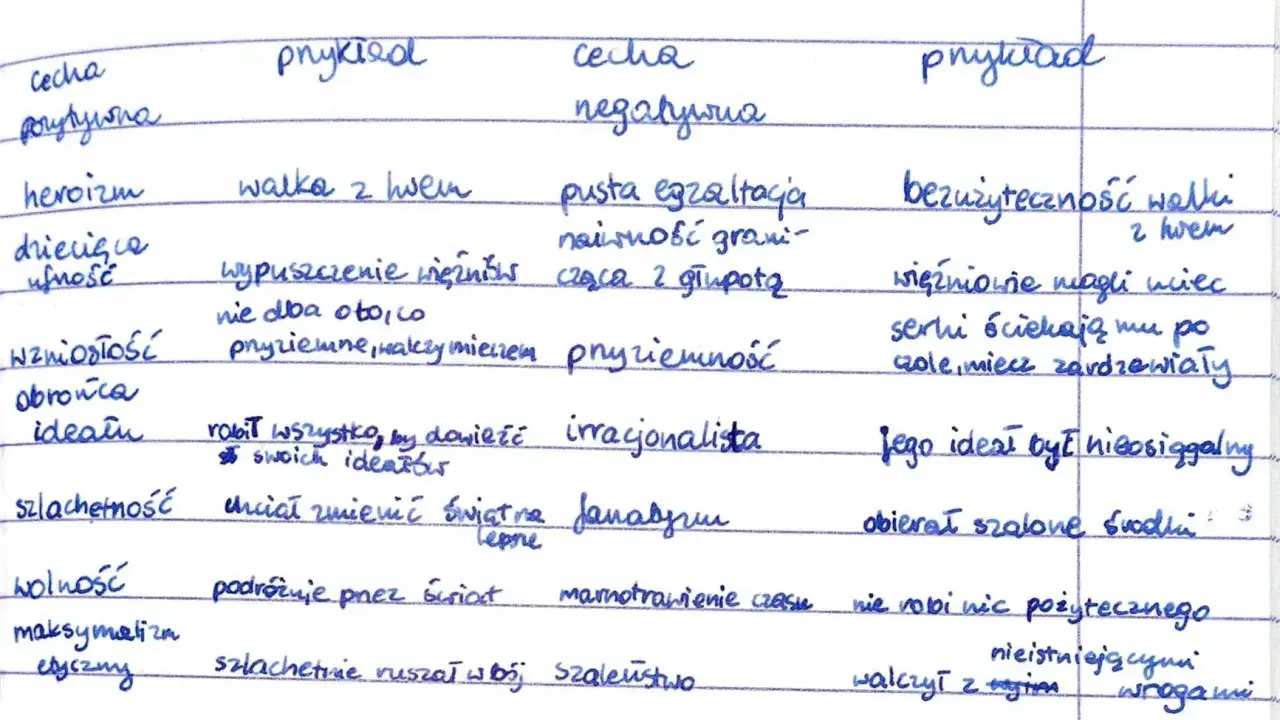 cecha przykład cecha przykład
pozytywna negatywna
heroizm walka z lwem pusta egzaltacja bezużyteczność walki
z lwem
dziecięca naiwność grani-
ufność wypuszczenie więźniów cząca z głupotą więźniowie mogli uciec
nie dba o to, co serki ściekają mu po
wzniosłość przyziemne, walczy mieczem przyziemność czole, miecz zardzewiały
obrońca
ideału robił wszystko, by dowieść irracjonalista jego ideał był nieosiągalny
swoich ideałów
szlachetność chciał zmienić świat na fanatyzm obierał szalone środki
lepsze
wolność podróżuje przez świat marnotrawienie czasu nie robi nic pożytecznego
maksymalizm nieistniejącymi
etyczny szlachetnie ruszał w bój szaleństwo walczył z wrogami